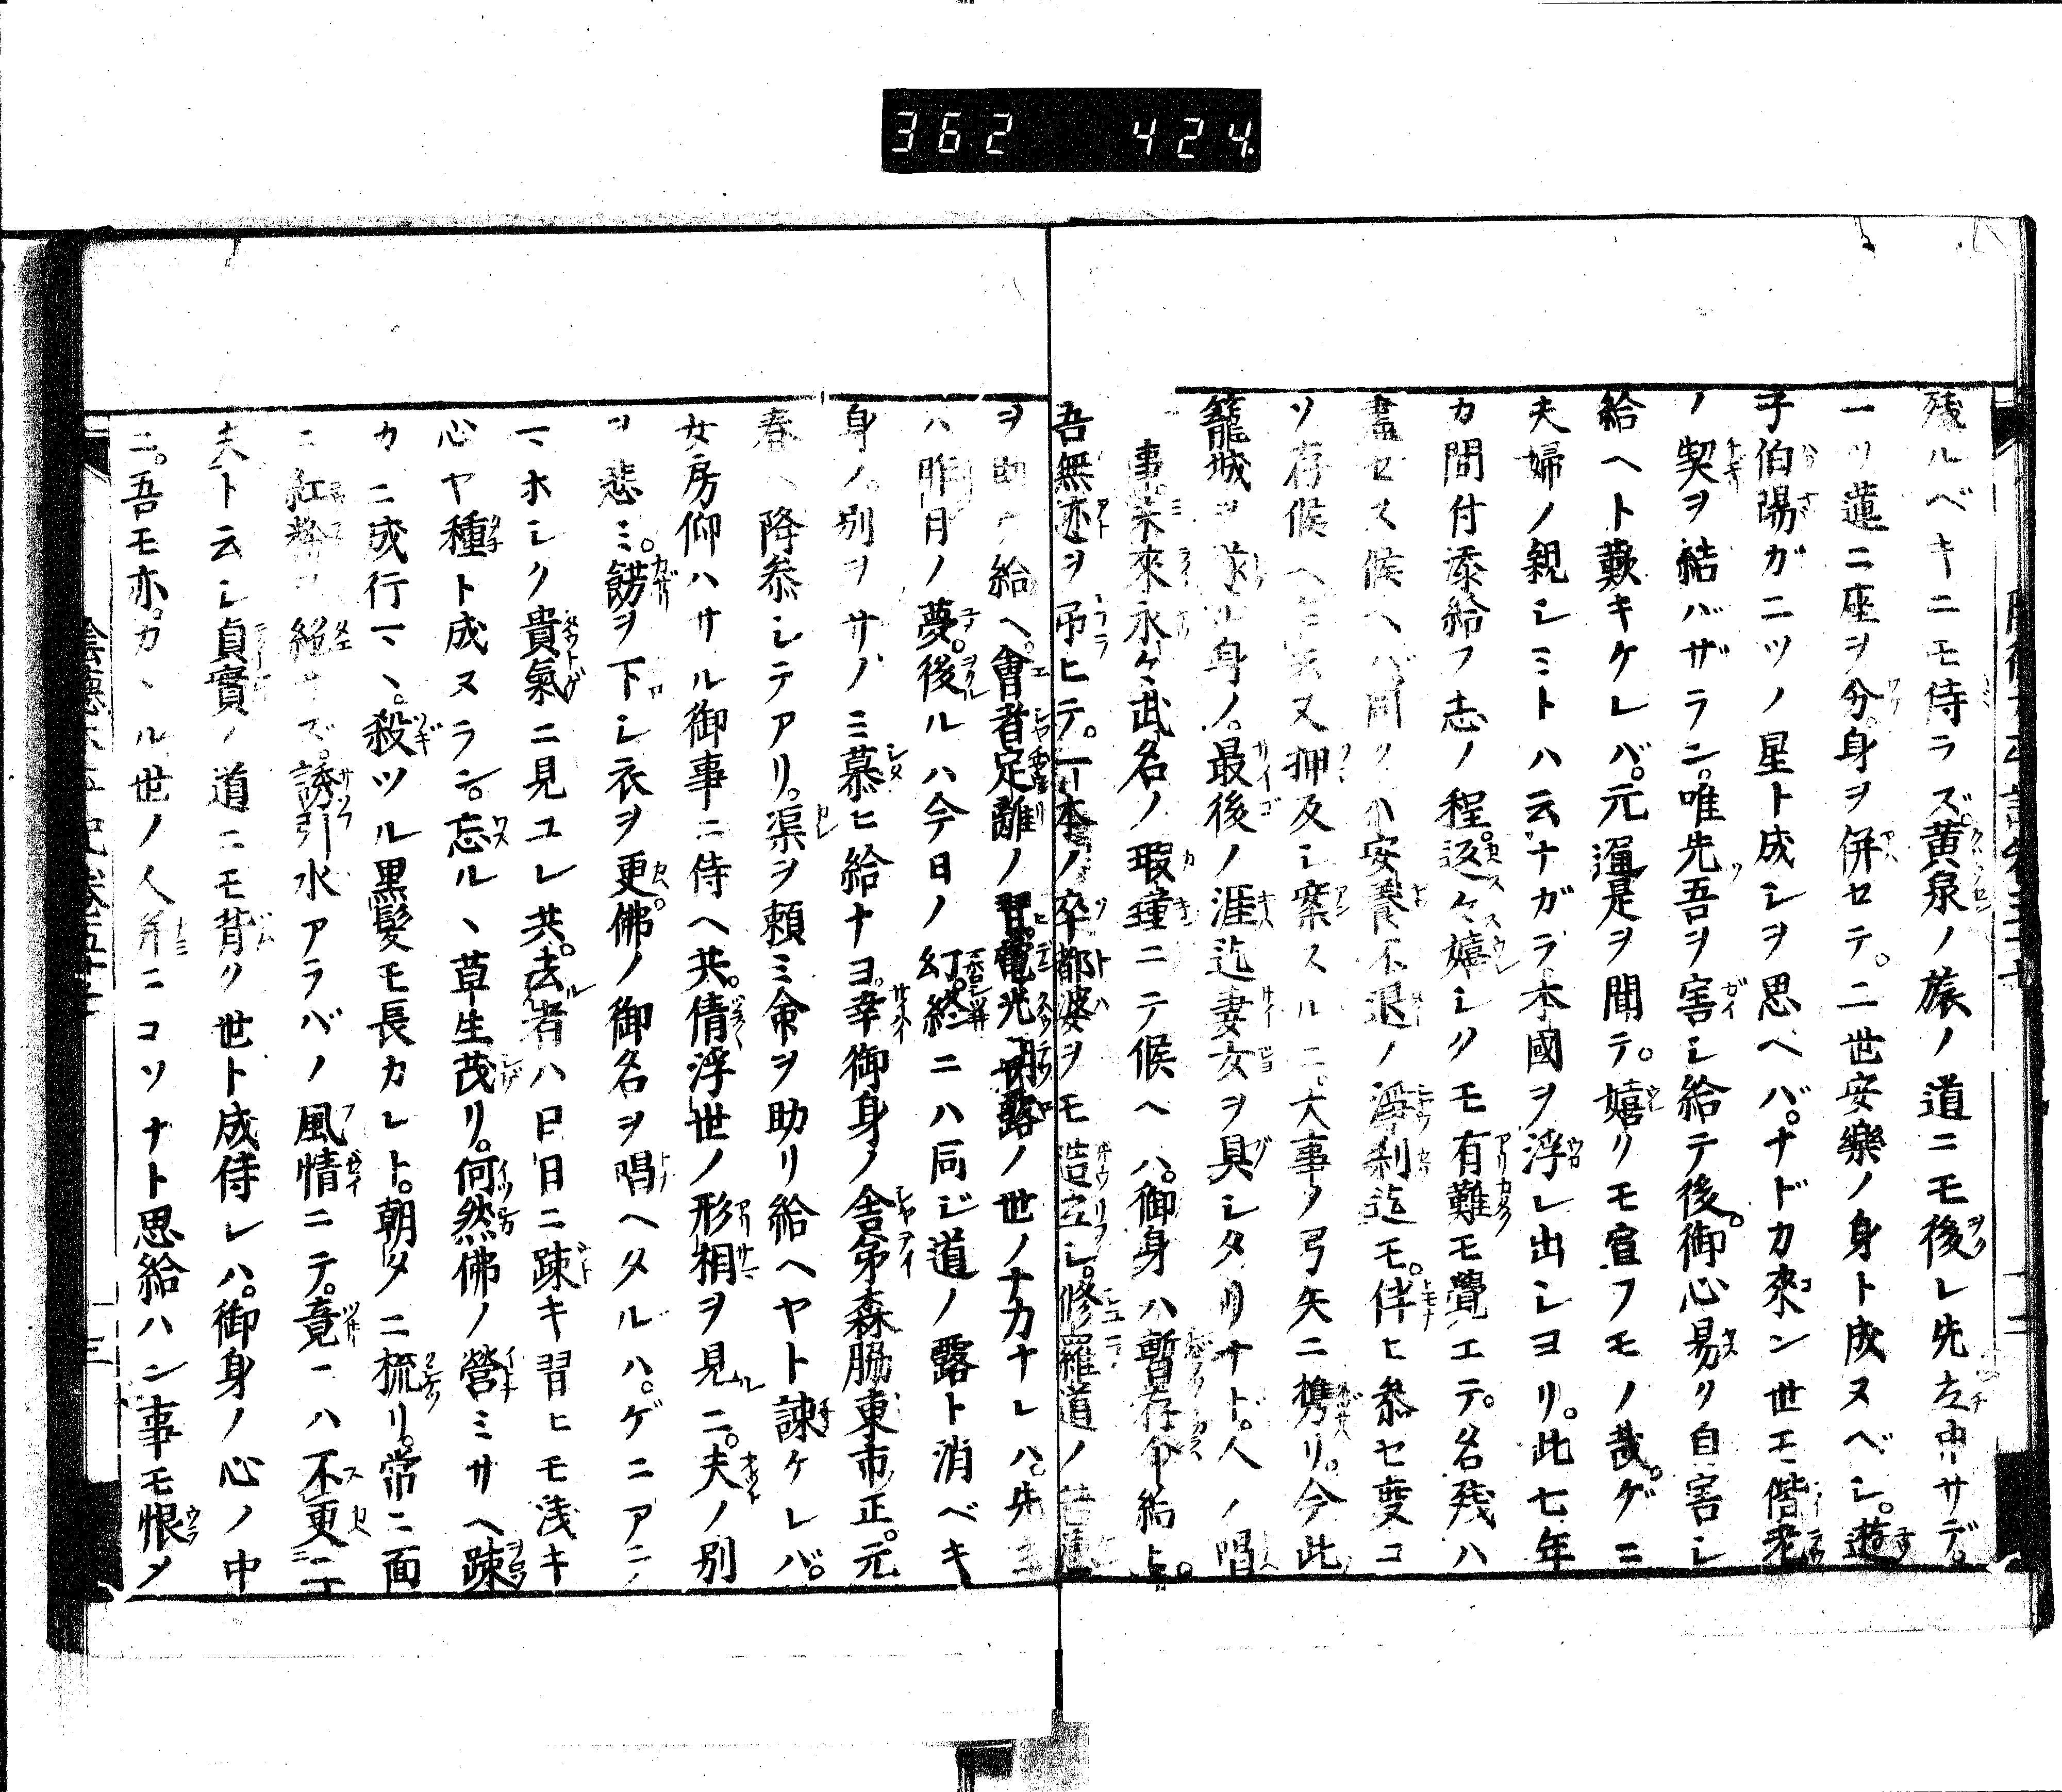 362 424.
残ルベキニモ侍ラズ。黄泉ノ旅ノ道ニモ後レ先立申サデ。
一ツ蓮ニ座ヲ分。身ヲ併セテ。二世安樂ノ身ト成ヌベシ。遊
子伯陽ガニツノ星ト成シヲ思ヘバ。ナドカ來ン世エ偕老
ノ契ヲ結バザラン。唯先吾ヲ害シ給テ後。御心易ク自害シ
給ヘト歎キケレバ。元通是ヲ聞テ。嬉クモ宣フモノ哉。ゲニ
夫婦ノ親シミトハ云ナガラ本國ヲ浮レ出シヨリ。此七年
カ間付添給フ志ノ程。返々嬉シクモ有難モ覺エテ。名残ハ
盡セス候ヘバ同クハ安養不退ノ淨刹迄モ。伴ヒ參セ度コ
ソ存候ヘ 又押反シ案スルニ。大事ノ弓矢ニ携リ。今此
籠城ヲ 身ノ。最後ノ涯迄妻女ヲ具シタリナト。人ノ唱
事。未來永々武名ノ瑕瑾ニテ候ヘハ。御身ハ暫存命給ヒ。
吾無迹ヲ弔ヒテ。一本ノ卒都婆ヲモ造立シ。修羅道ノ苦
ヲ助ケ給ヘ。會者定離ノ習。電光朝露ノ世ノナカナレハ。先
ハ昨日ノ夢。後ルハ今日ノ幻。終ニハ同ジ道ノ露ト消ベキ
身ノ。別ヲサノミ慕ヒ給ナヨ。幸御身ノ舎弟森脇東市正。元
春ヘ降參シテアリ。渠ヲ頼ミ命ヲ助リ給ヘヤト諫ケレバ。
女房仰ハサル御事ニ侍ヘ共。倩浮世ノ形相ヲ見ルニ。夫ノ別
ヲ悲ミ。餝ヲ下シ衣ヲ更。佛ノ御名ヲ唱ヘタルハ。ゲニアニ
マホシク貴氣ニ見ユレ共。去者ハ日日ニ疎キ習ヒモ浅キ
心ヤ種ト成ヌラン。忘ルヽ草生茂リ。何然佛ノ營ミサヘ疎
カニ成行マヽ。殺ツル黒髪モ長カレト。朝夕ニ梳リ。常ニ面
ニ紅粉ヲ絶サズ。誘引水アラバノ風情ニテ。竟ニハ不更二
夫ト云シ貞實ノ道ニモ背ク世ト成侍レハ。御身ノ心ノ中
ニ。吾モ亦。カヽル世ノ人 ニコソナト思給ハン事モ恨メ